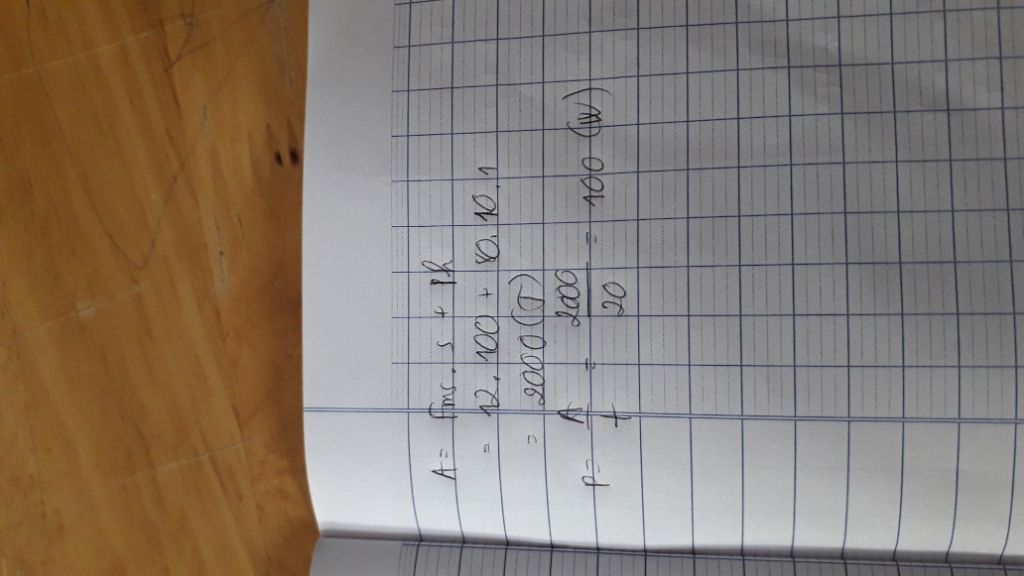 A = Fms . s + Ph
= 12 . 100 + 80 . 10 . 1
= 2000 (J)
P = A/t = 2000/20 = 100 (W)